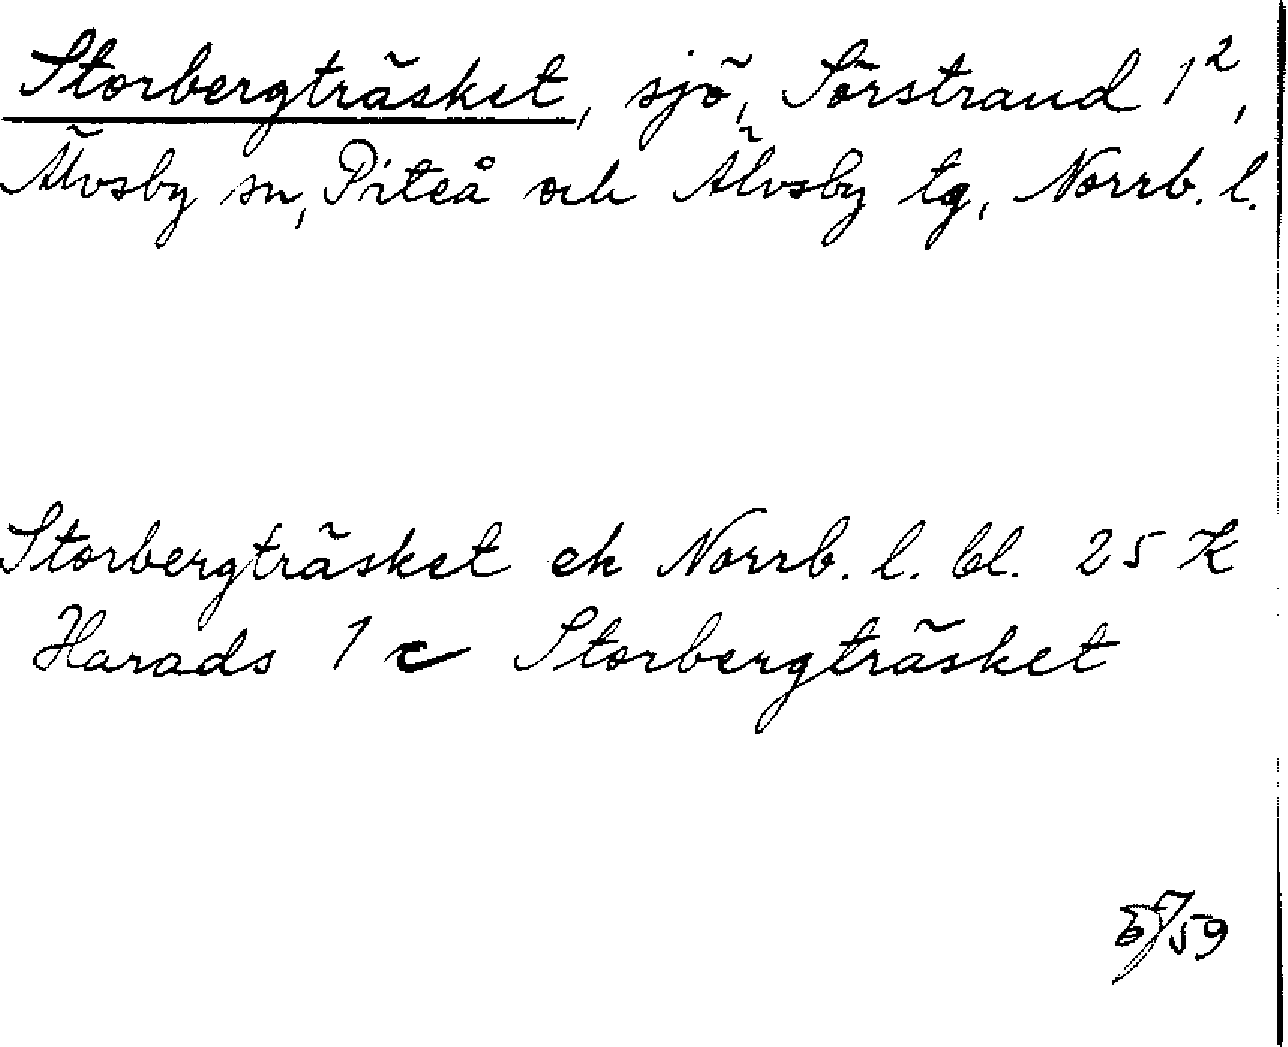 Storbergträsket, sjö, Sörstrand 1²,
Älvsby sn, Piteå och Älvsby tg, Norrb. l.
Storbergträsket ek Norrb. l. bl. 25 K
Harads 1 c Storbergträsket